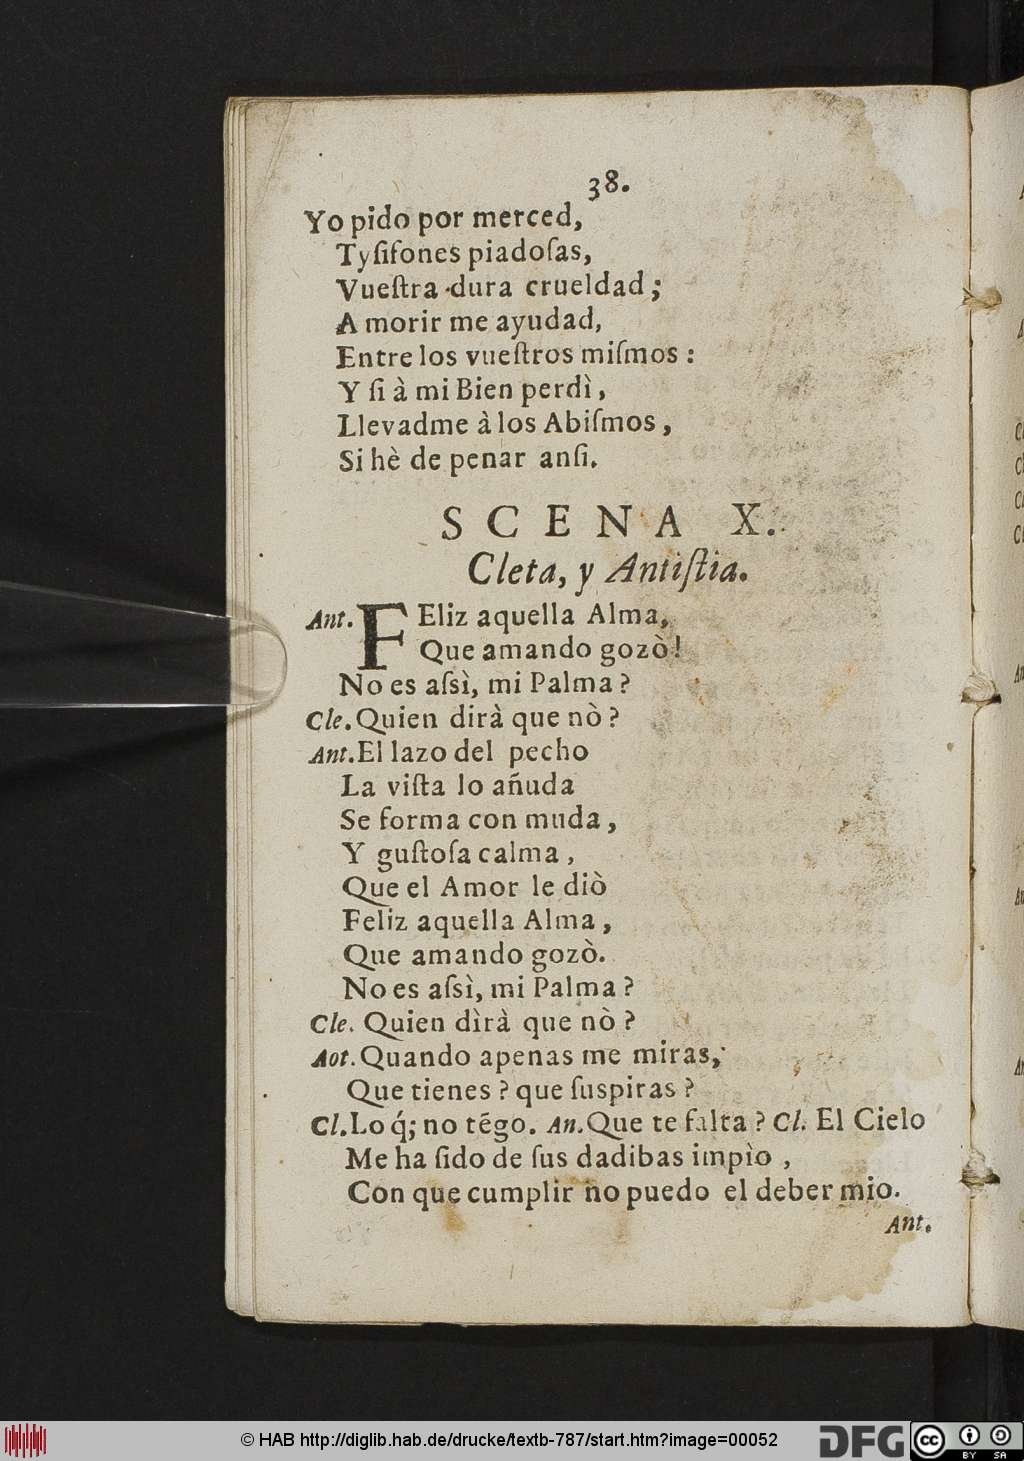 38.
Yo pido por merced,
Tyſifones piadoſas,
Vueſtra dura crueldad;
A morir me ayudad,
Entre los vueſtros miſmos:
Y ſi à mi Bien perdì,
Llevadme à los Abiſmos,
Si hè de penar anſi.
SCENA X.
Cleta, y Antiſtia.
Ant. FEliz aquella Alma,
Que amando gozò!
No es aſsì, mi Palma?
Cle. Quien dirà que nò?
Ant. El lazo del pecho
La viſta lo añuda
Se forma con muda,
Y guſtoſa calma,
Que el Amor le diò
Feliz aquella Alma,
Que amando gozò.
No es aſsì, mi Palma?
Cle. Quien dìrà que nò?
Aot. Quando apenas me miras,
Que tienes? que ſuspiras?
Cl. Lo q́; no tēgo. An. Que te falta? Cl. El Cielo
Me ha ſido de ſus dadibas impìo,
Con que cumplir no puedo el deber mio.
Ant.
© HAB http://diglib.hab.de/drucke/textb-787/start.htm?image=00052
DFG
cc
BY SA